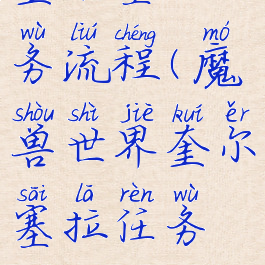 wù liú chéng mó
务流程(魔
shòu shì jiè kuí ěr
兽世界奎尔
sāi lā rèn wù
塞拉任务